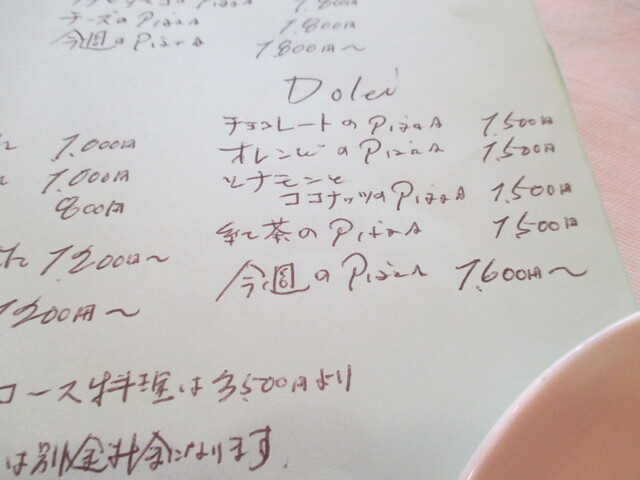 チーズのPizzA 1.800円
今週のPizzA 1800円〜
Dolci
チョコレートのPizzA 1.500円
オレンジのPizzA 1.500円
シナモンと
ココナッツのPizzA 1.500円
紅茶のPizzA 1.500円
今週のPizzA 1.600円〜
1.000円
1.000円
800円
1200円〜
1200円〜
コース料理は3,500円より
は別金料金になります。